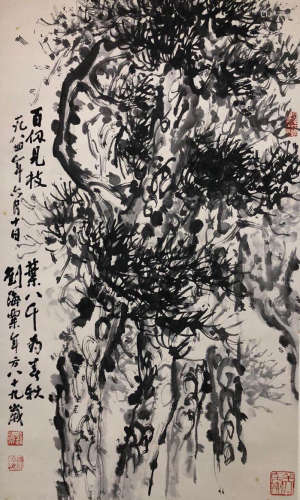 百仞見枝葉八千为春秋
一九八四年六月十日劉海粟年方八十九歲